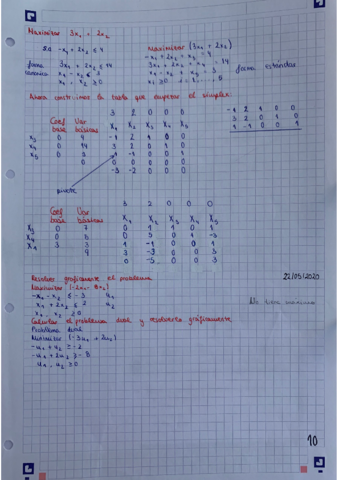 Maximizar 3x₁ + 2x₂
s.a -x₁ + 2x₂ ≤ 4
forma canónica
3x₁ + 2x₂ ≤ 14
x₁ - x₂ ≤ 3
x₁, x₂ ≥ 0
Maximizar (3x₁ + 2x₂)
-x₁ + 2x₂ + x₃ = 4
3x₁ + 2x₂ + x₄ = 14
x₁ - x₂ + x₅ = 3
forma estándar
Ahora construimos la tabla que empieza el simplex:
-1 2 1 0 0
3 2 0 1 0
1 -1 0 0 1
3 2 0 0 0
Coef base Var básicas X₁ X₂ X₃ X₄ X₅
X₃ 0 4 -1 2 1 0 0
X₄ 0 14 3 2 0 1 0
X₅ 0 3 1 -1 0 0 1
0 0 0 0 0 0
-3 -2 0 0 0
pivote
3 2 0 0 0
Coef base Var básicas X₁ X₂ X₃ X₄ X₅
X₃ 0 7 0 1 1 0 1
X₄ 0 5 0 5 0 1 -3
X₁ 3 3 1 -1 0 0 1
9 3 -3 0 0 3
0 -5 0 0 3
22/05/2020
Resolver gráficamente el problema
-x₁ - x₂ ≤ -3 u₁
x₁, x₂ ≥ 0
No tiene máximo
Calcular el problema dual y resolverlo gráficamente.
Problema dual
-u₁ + u₂ ≥ -2
-u₁ + 2u₂ ≥ -8
u₁, u₂ ≥ 0
10